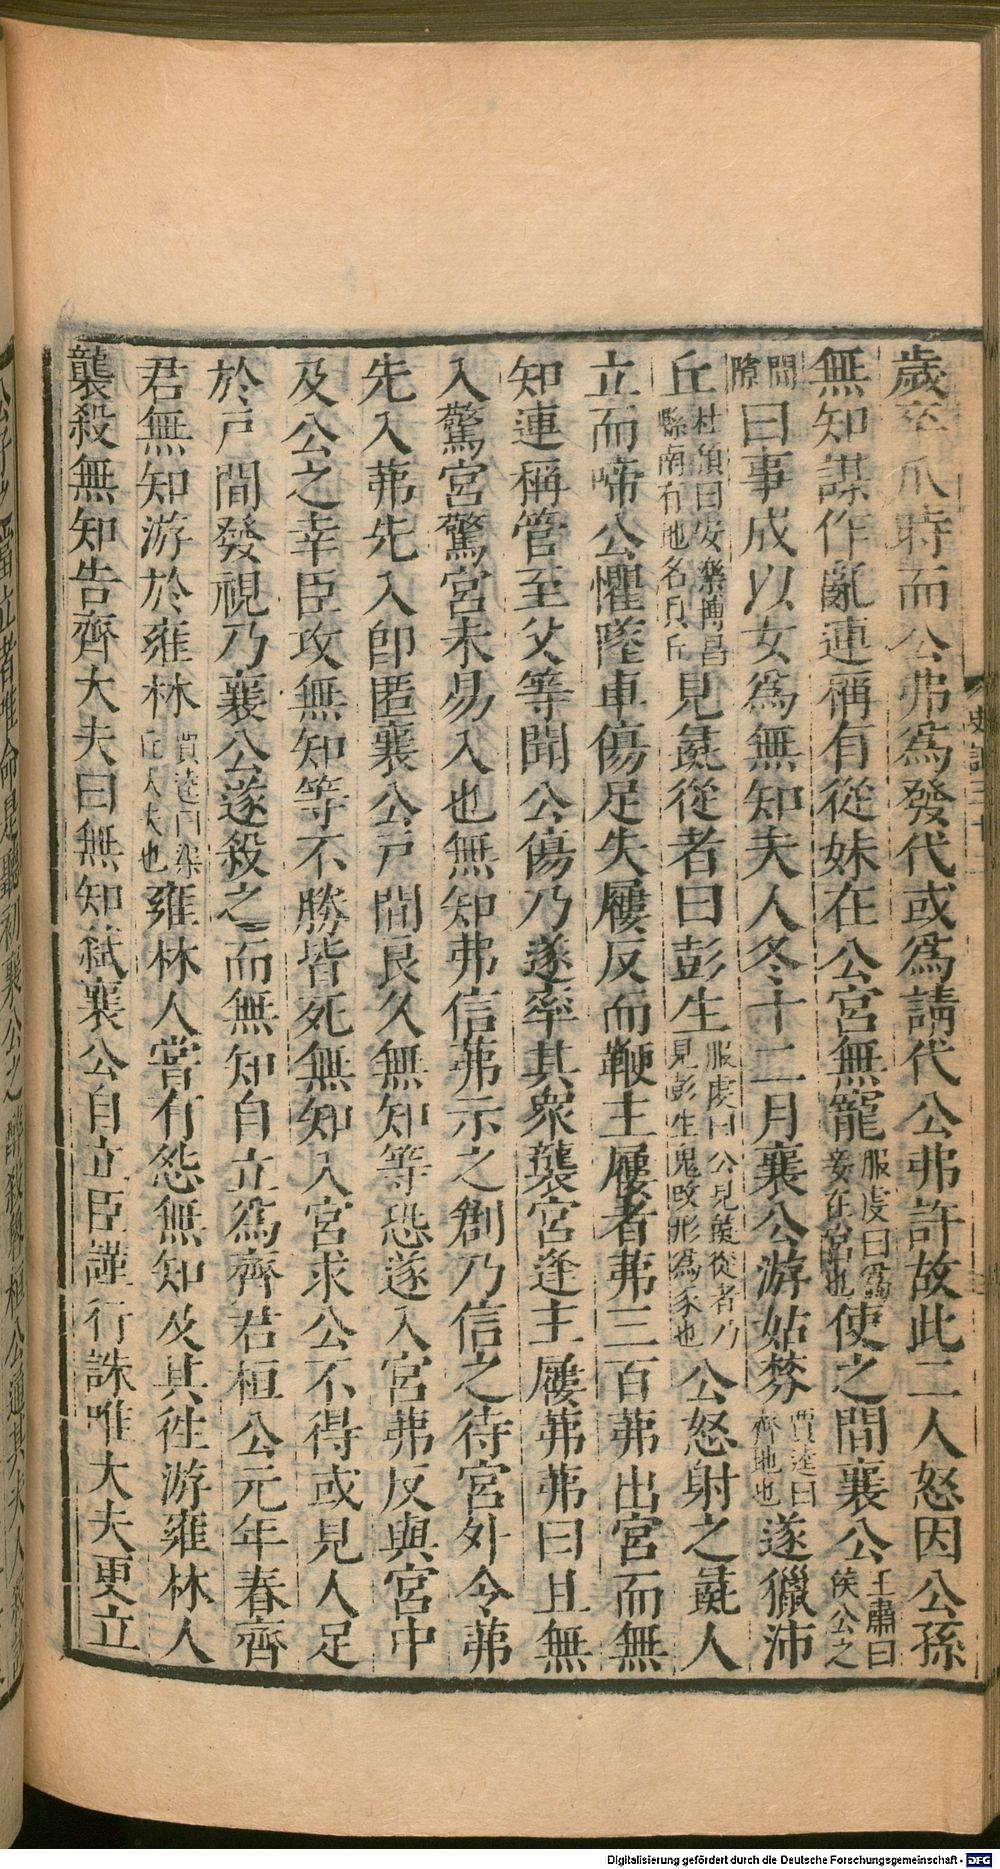 歲卒瓜時而公弗爲發代或爲請代公弗許故此二人怒因公孫
無知謀作亂連稱有從妹在公宮無寵服虔曰爲妾在宮也使之間襄公王肅曰候公之
間隙曰事成以女爲無知夫人冬十二月襄公游姑棼賈逵曰齊地也遂獵沛
丘杜預曰安樂博昌縣南有地名貝丘見彘從者曰彭生服虔曰公見彘從者乃見彭生鬼改形爲豕也公怒射之彘人
立而啼公懼墜車傷足失屨反而鞭主屨者茀三百茀出宮而無
知連稱管至父等聞公傷乃遂率其衆襲宮逢主屨茀茀曰且無
入驚宮驚宮未易入也無知弗信茀示之創乃信之待宮外令茀
先入茀先入卽匿襄公戶間良久無知等恐遂入宮茀反與宮中
及公之幸臣攻無知等不勝皆死無知入宮求公不得或見人足
於戶間發視乃襄公遂殺之而無知自立爲齊君桓公元年春齊
君無知游於雍林賈逵曰渠丘大夫也雍林人嘗有怨無知及其往游雍林人
襲殺無知告齊大夫曰無知弑襄公自立臣謹行誅唯大夫更立
Digitalisierung gefördert durch die Deutsche Forschungsgemeinschaft - DFG